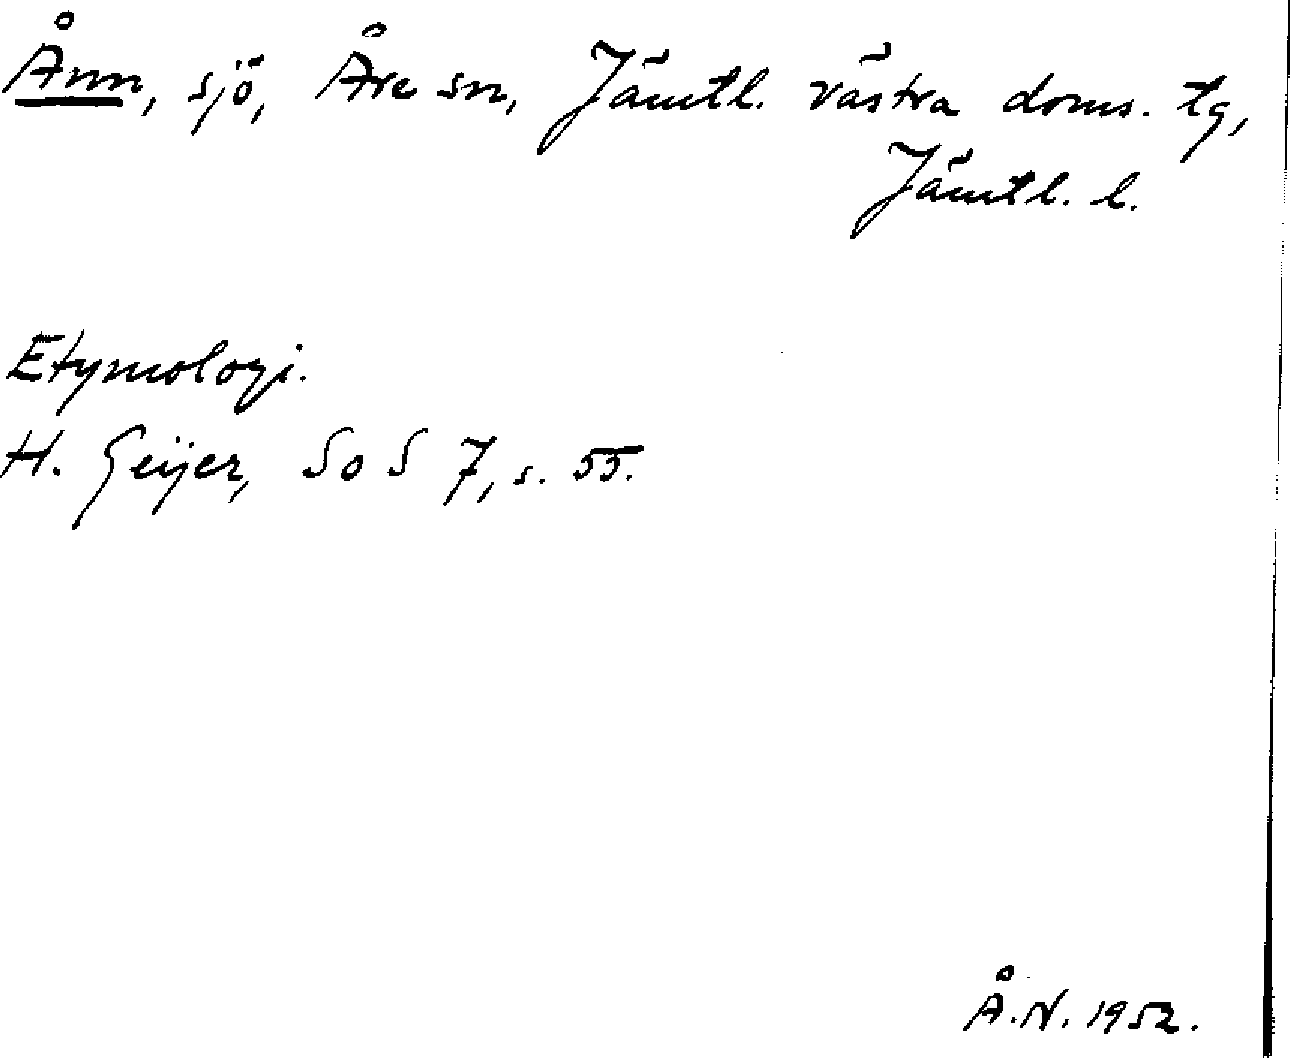 Ånn, sjö, Åre sn, Jämtl. västra doms. tg,
Jämtl. l.
Etymologi.
H. Geijer, SoS 7, s. 55.
Å.N. 1952.